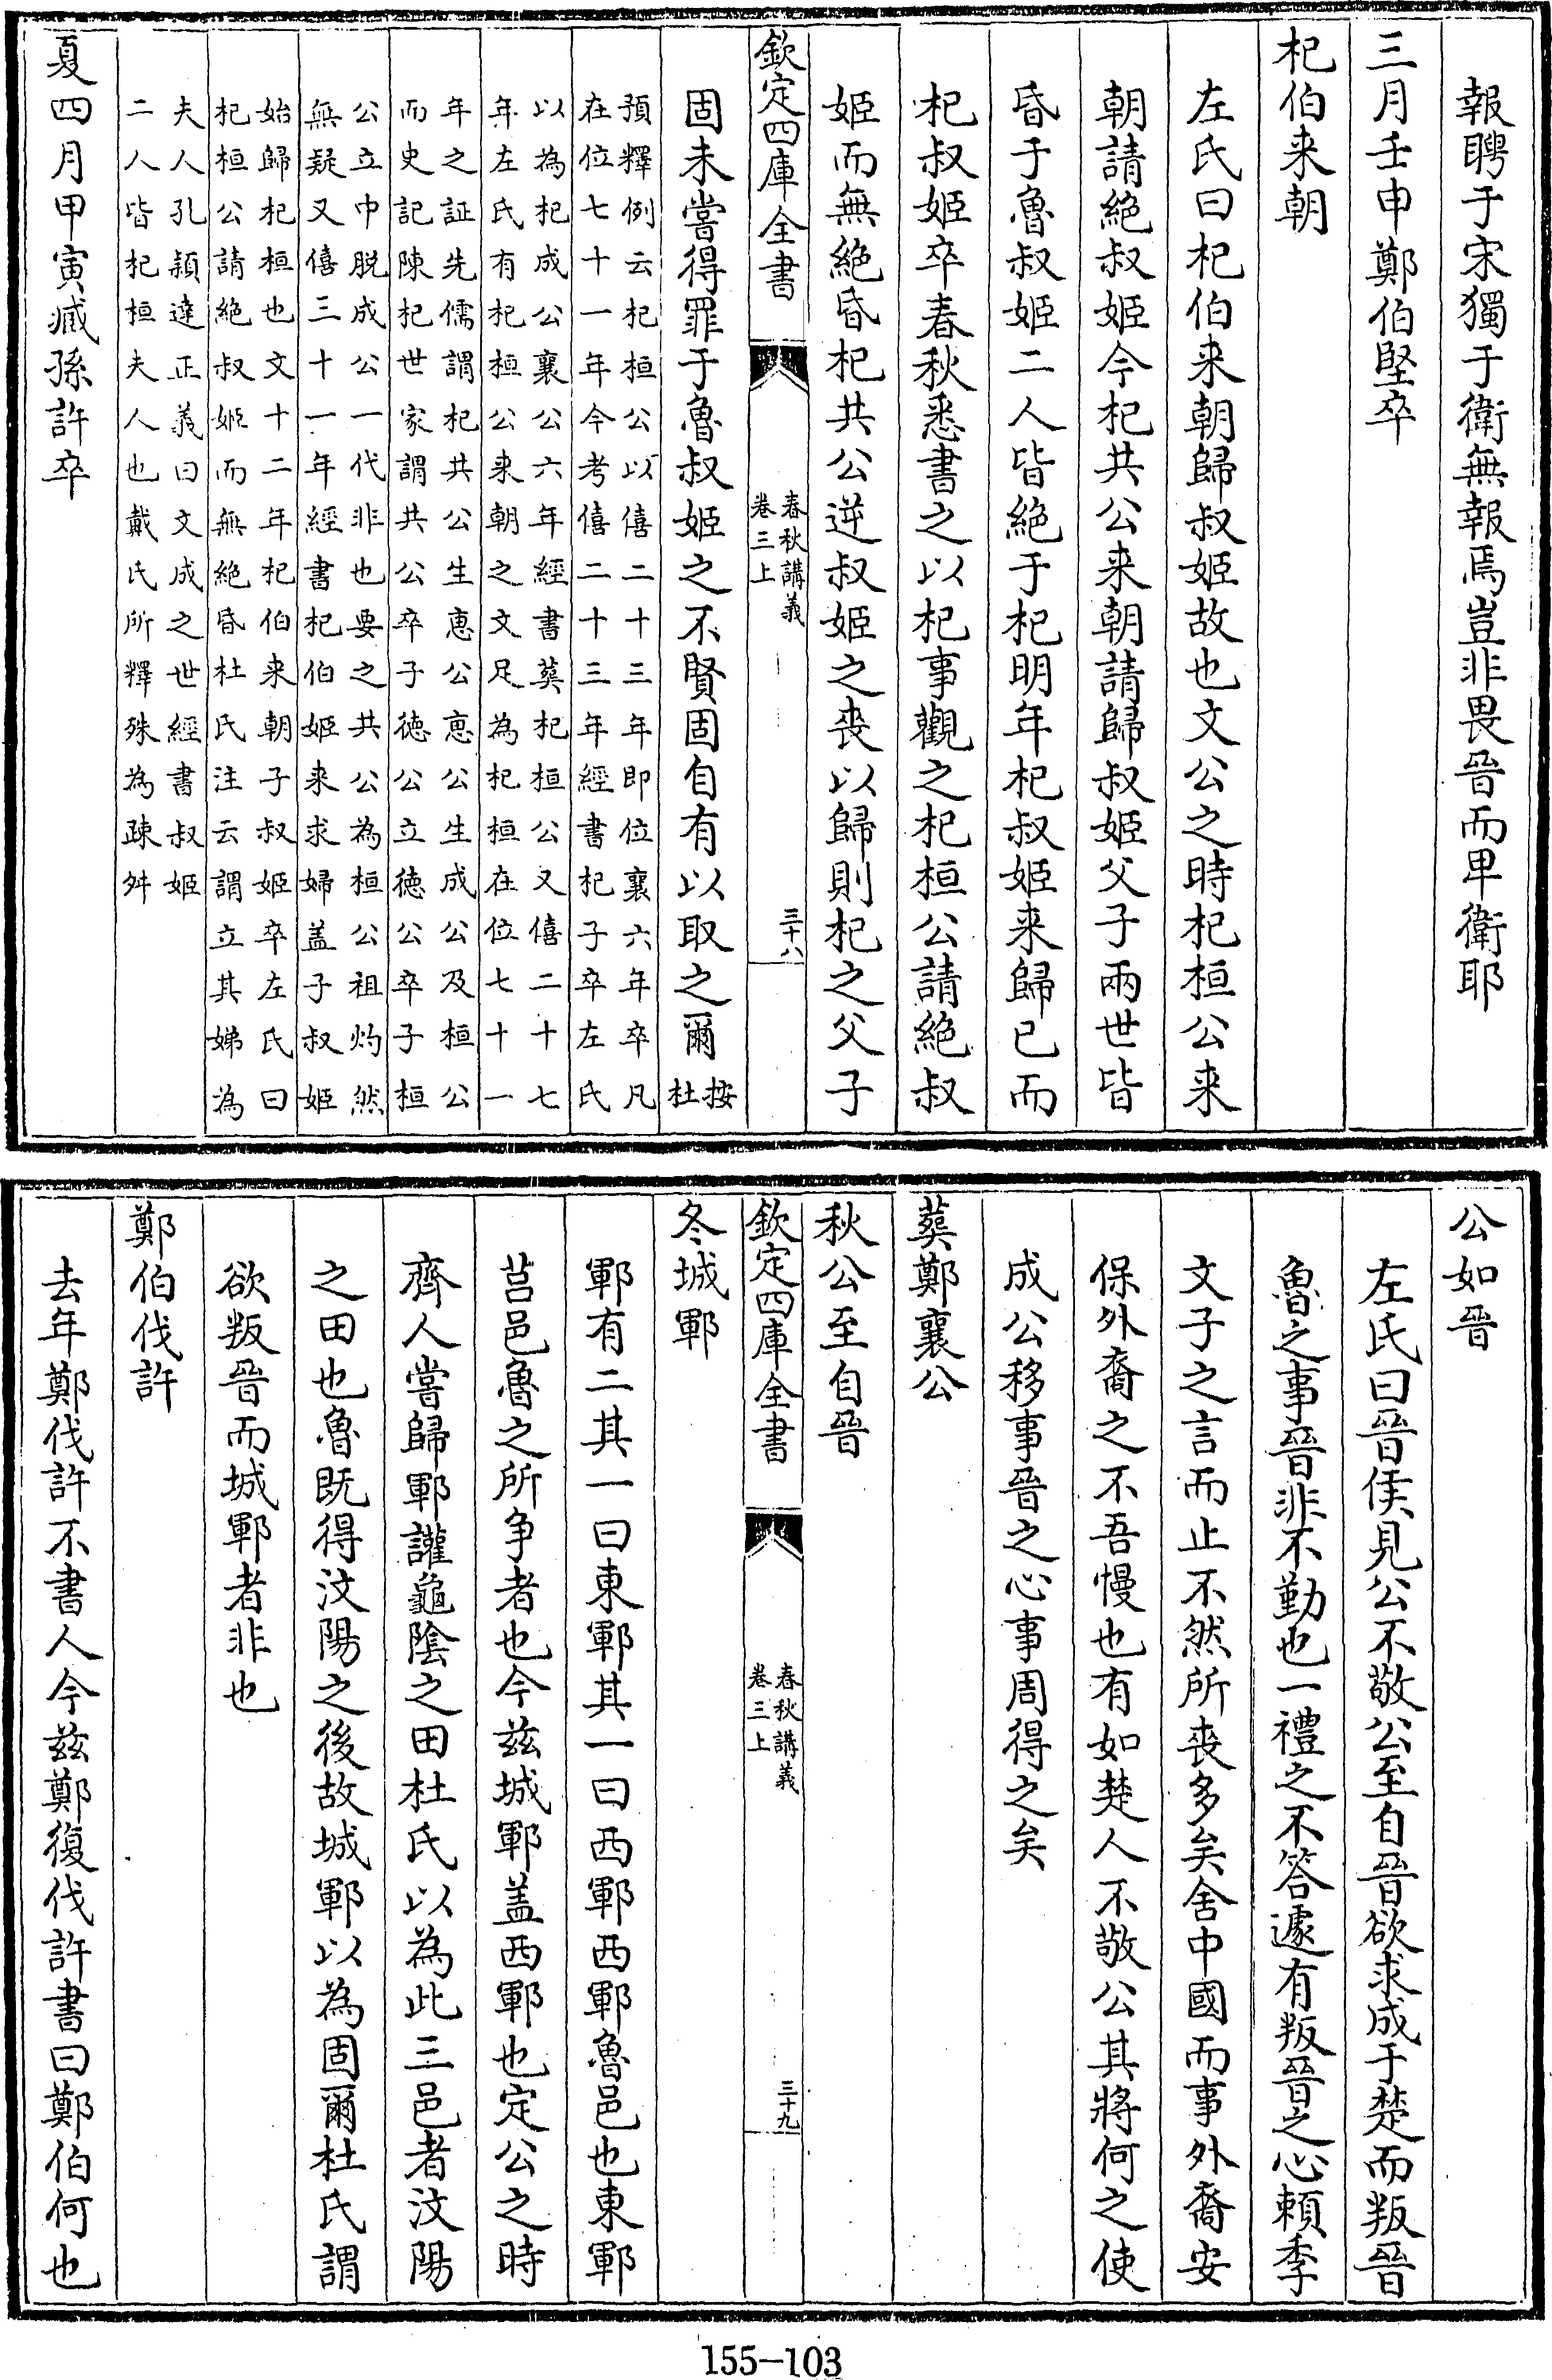 報聘于宋獨于衛無報焉豈非畏晉而卑衛耶
三月壬申鄭伯堅卒
杞伯来朝
左氏曰杞伯来朝歸叔姬故也文公之時杞桓公来
朝請絶叔姬今杞共公来朝請歸叔姬父子兩世皆
昏于魯叔姬二人皆絶于杞明年杞叔姬来歸已而
杞叔姬卒春秋悉書之以杞事觀之杞桓公請絶叔
姬而無絶昏杞共公逆叔姬之喪以歸則杞之父子
欽定四庫全書
春秋講義
卷三上
三十八
固未嘗得罪于魯叔姬之不賢固自有以取之爾
按
杜
預釋例云杞桓公以僖二十三年即位襄六年卒凡
在位七十一年今考僖二十三年經書杞子卒左氏
以為杞成公襄公六年經書葬杞桓公又僖二十七
年左氏有杞桓公来朝之文足為杞桓在位七十一
年之証先儒謂杞共公生惠公惠公生成公及桓公
而史記陳杞世家謂共公卒子德公立德公卒子桓
公立中脱成公一代非也要之共公為桓公祖灼然
無疑又僖三十一年經書杞伯姬来求婦盖子叔姬
始歸杞桓也文十二年杞伯来朝子叔姬卒左氏曰
杞桓公請絶叔姬而無絶昏杜氏注云謂立其娣為
夫人孔穎達正義曰文成之世經書叔姬
二人皆杞桓夫人也戴氏所釋殊為疎舛
夏四月甲寅臧孫許卒
公如晉
左氏曰晉侯見公不敬公至自晉欲求成于楚而叛晉
魯之事晉非不勤也一禮之不答遽有叛晉之心賴季
文子之言而止不然所喪多矣舍中國而事外裔安
保外裔之不吾慢也有如楚人不敬公其將何之使
成公移事晉之心事周得之矣
葬鄭襄公
秋公至自晉
欽定四庫全書
春秋講義
卷三上
三十九
冬城鄆
鄆有二其一曰東鄆其一曰西鄆西鄆魯邑也東鄆
莒邑魯之所争者也今兹城鄆盖西鄆也定公之時
齊人嘗歸鄆讙龜陰之田杜氏以為此三邑者汶陽
之田也魯既得汶陽之後故城鄆以為固爾杜氏謂
欲叛晉而城鄆者非也
鄭伯伐許
去年鄭伐許不書人今兹鄭復伐許書曰鄭伯何也
155-103